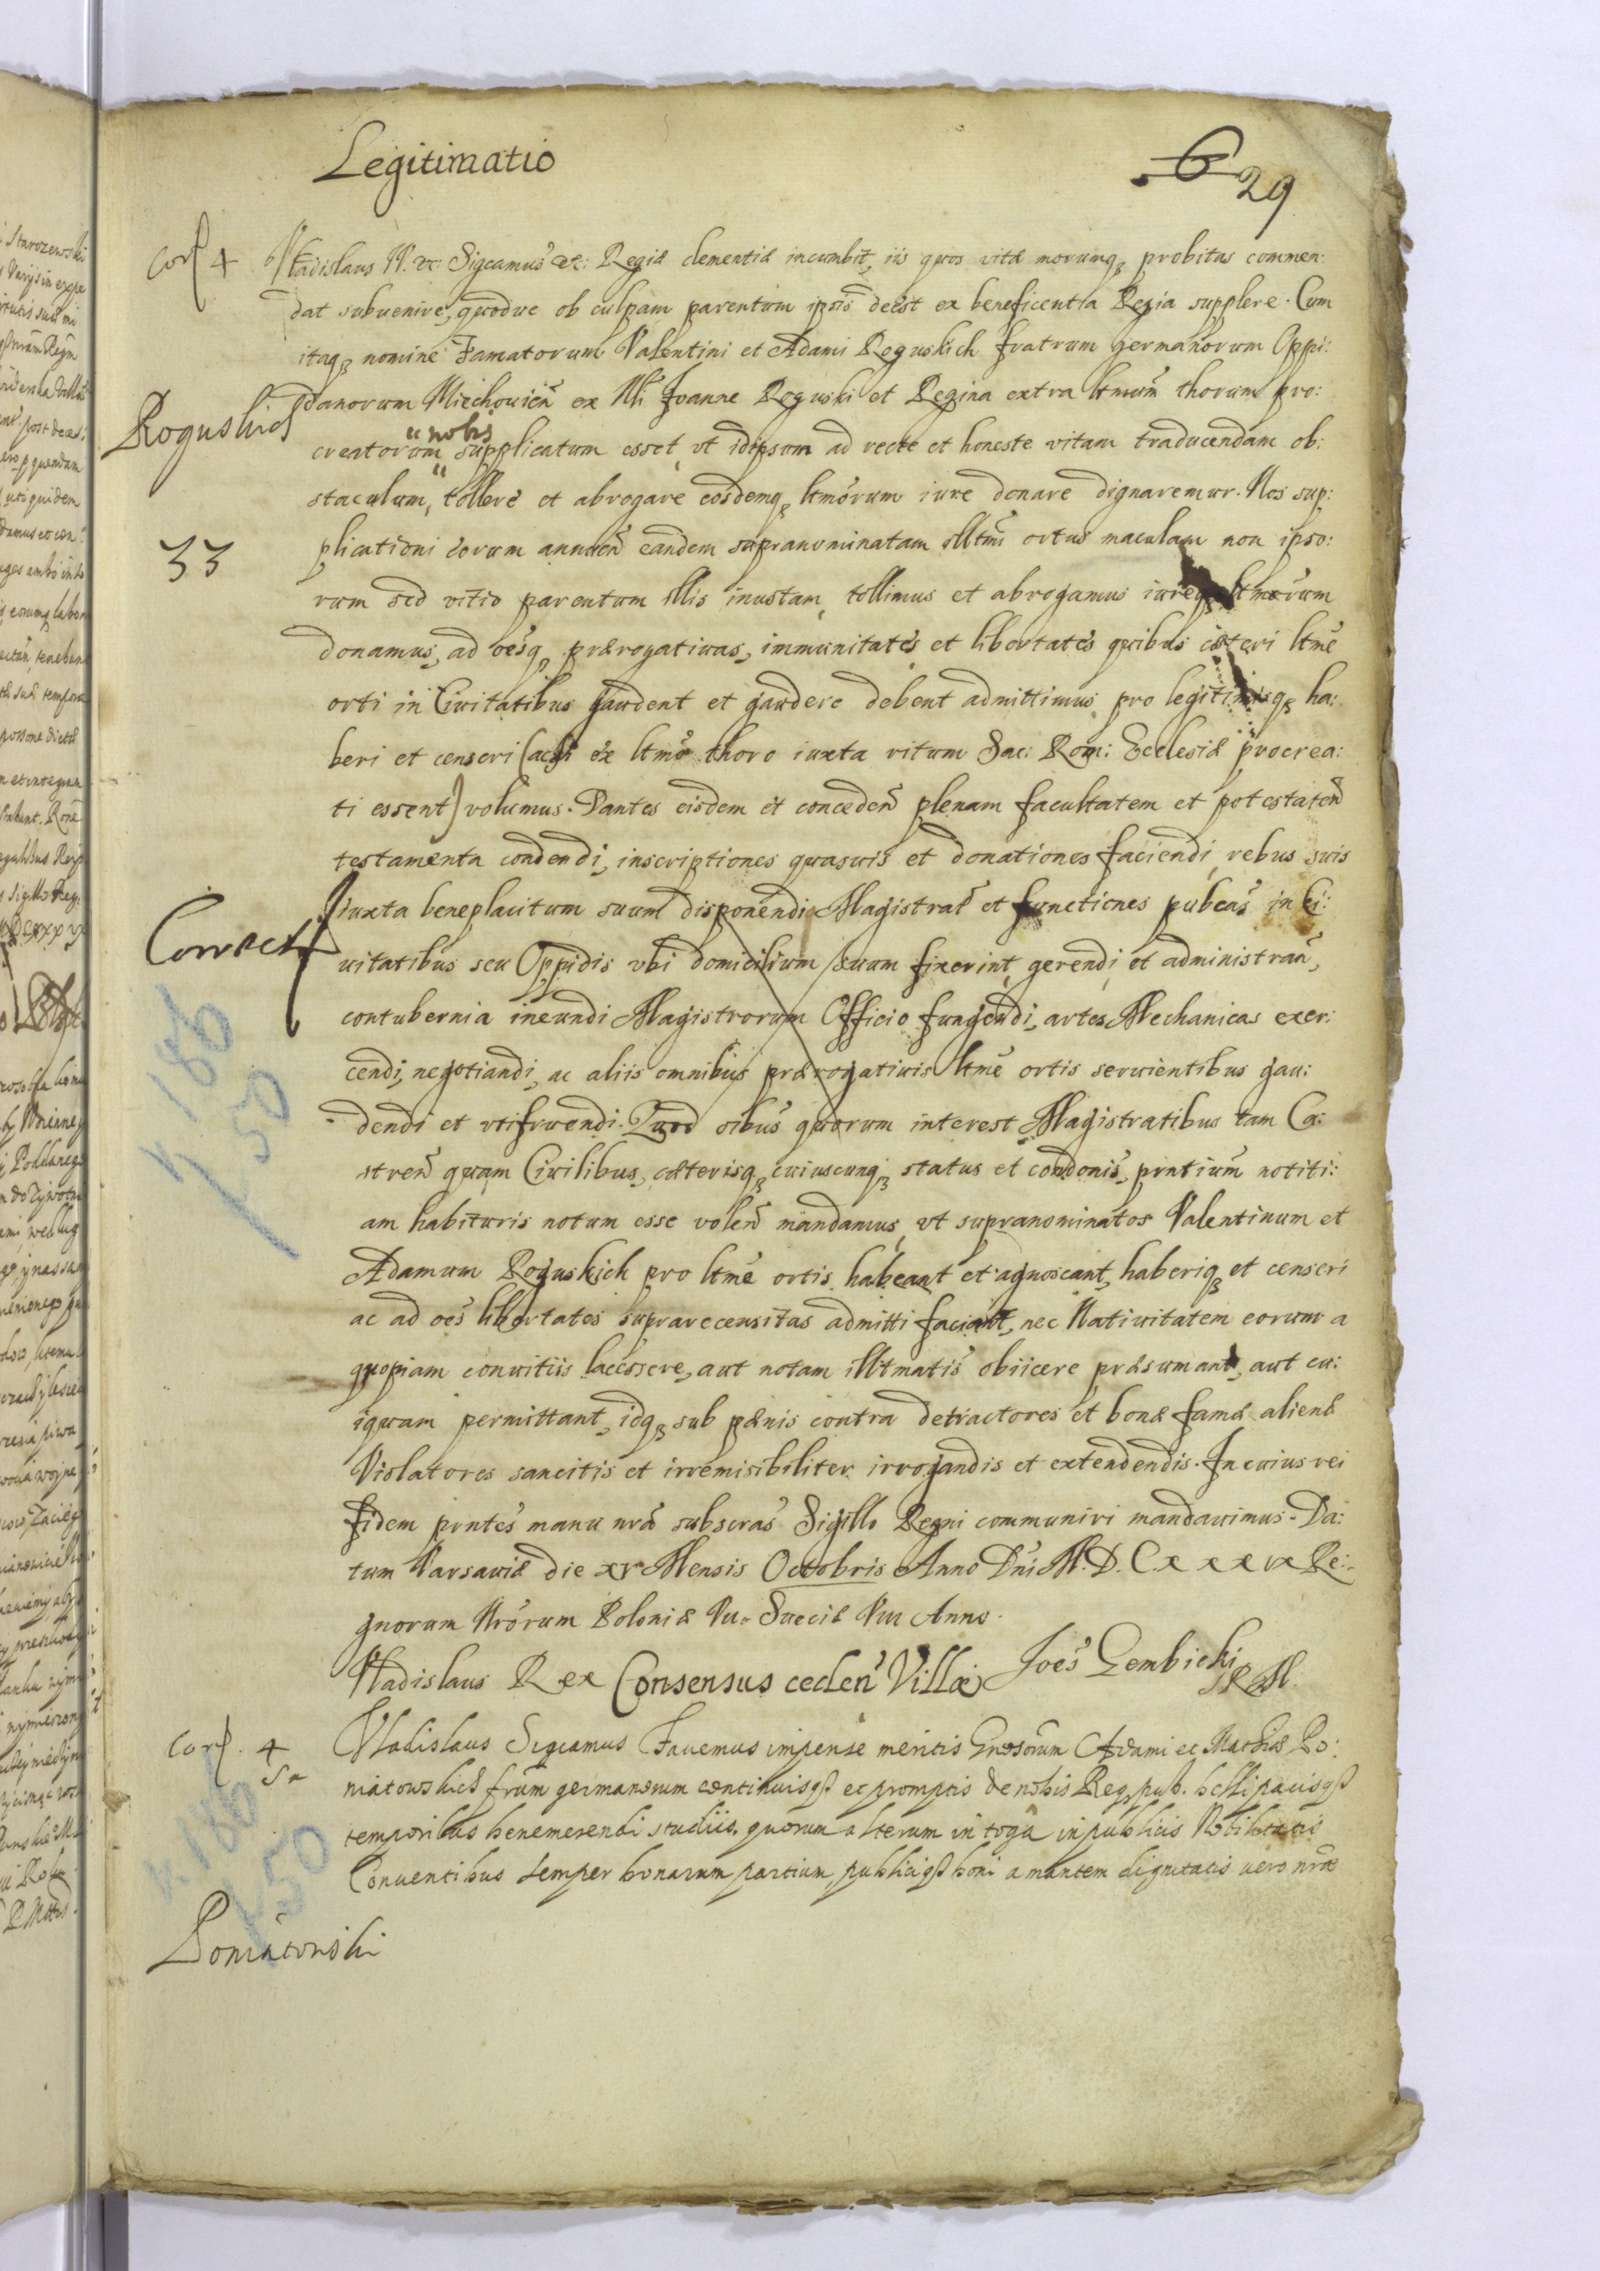 Legitimatio
6
29
Corr 4
Vladislaus IV. etc: Sigcamus etc: Regiæ clementiæ incumbit, iis quos vitæ morumq₃ probitas commen:
dat subuenire, quodue ob culpam parentum ipsis deest ex beneficentia Regia supplere. Cum
itaq₃ nomine Famatorum Valentini et Adami Roguskich fratrum germanorum Oppi:
Roguskich
danorum Miechouien̄ ex Nli Joanne Roguski et Regina extra ltmum thorum pro:
creatorum nobis supplicatum esset, vt idipsum ad recte et honeste vitam traducendam ob:
staculum, tollere et abrogare eosdemq₃ ltmorum iure donare dignaremur. Nos sup:
33
plicationi eorum annuen̄ eandem supranominatam Illtmi ortus maculam non ipso:
rum sed vitio parentum illis inustam, tollimus et abrogamus iureq₃ ltmorum
donamus, ad oesq₃ prærogatiuas, immunitates et libertates quibus cæteri ltme
orti in Ciuitatibus gaudent et gaudere debent admittimus pro legitimisq₃ ha:
beri et censeri (acsi ex ltmo thoro iuxta ritum Sac: Rom: Ecclesiæ procrea:
ti essent) volumus. Dantes eisdem et conceden̄ plenam facultatem et potestatem
testamenta condendi, inscriptiones quasuis et donationes faciendi, rebus suis
Correct
iuxta beneplacitum suum disponendi Magistrat et functiones pubcas in Ci:
uitatibus seu Oppidis vbi domicilium suum fixerint gerendi et administran̄,
contubernia ineundi Magistrorum Officio fungendi, artes Mechanicas exer:
k 186
f 50
cendi, negotiandi, ac aliis omnibus prærogatiuis ltme ortis seruientibus gau:
dendi et vtifruendi. Quod oibus quorum interest Magistratibus tam Ca:
stren̄ quam Ciuilibus, cæterisq₃ cuiuscunq₃ status et condonis, pntium notiti:
am habituris notum esse volen̄ mandamus, vt supranominatos Valentinum et
Adamum Roguskich pro ltme ortis habeant et agnoscant, haberiq₃ et censeri
ac ad oes libertates suprarecensitas admitti faciant, nec Natiuitatem eorum a
quopiam conuitiis lacessere, aut notam illtmatis obiicere præsumant, aut cu:
iquam permittant, idq₃ sub pænis contra detractores et bonæ famæ alienæ
Violatores sancitis et irremisibiliter irrogandis et extendendis. In cuius rei
fidem pntes manu nra subscras Sigillo Regni communiri mandauimus. Da:
tum Varsauiæ die xv Mensis Octobris Anno Dni M. D. C. xxxix Re:
gnorum Nrorum Poloniæ Vii. Sueciæ Viii Anno.
Vladislaus Rex
Joes Gembicki
Consensus ceden̄ Villæ
Corr. 4
Vladislaus Sigcamus Fauemus impense meritis Gnosorum Adami et Mathiæ Po:
niatowskich frum germanorum continuisqß et promptis de nobis Reqpub. belli pacisqß
temporibus benemerendi studiis. quorum alterum in toga in publicis Nobilitatis
Conuentibus semper bonarum partium, publiciqß boni amantem dignitatis uero nræ
k. 186
f 50
Poniatowski